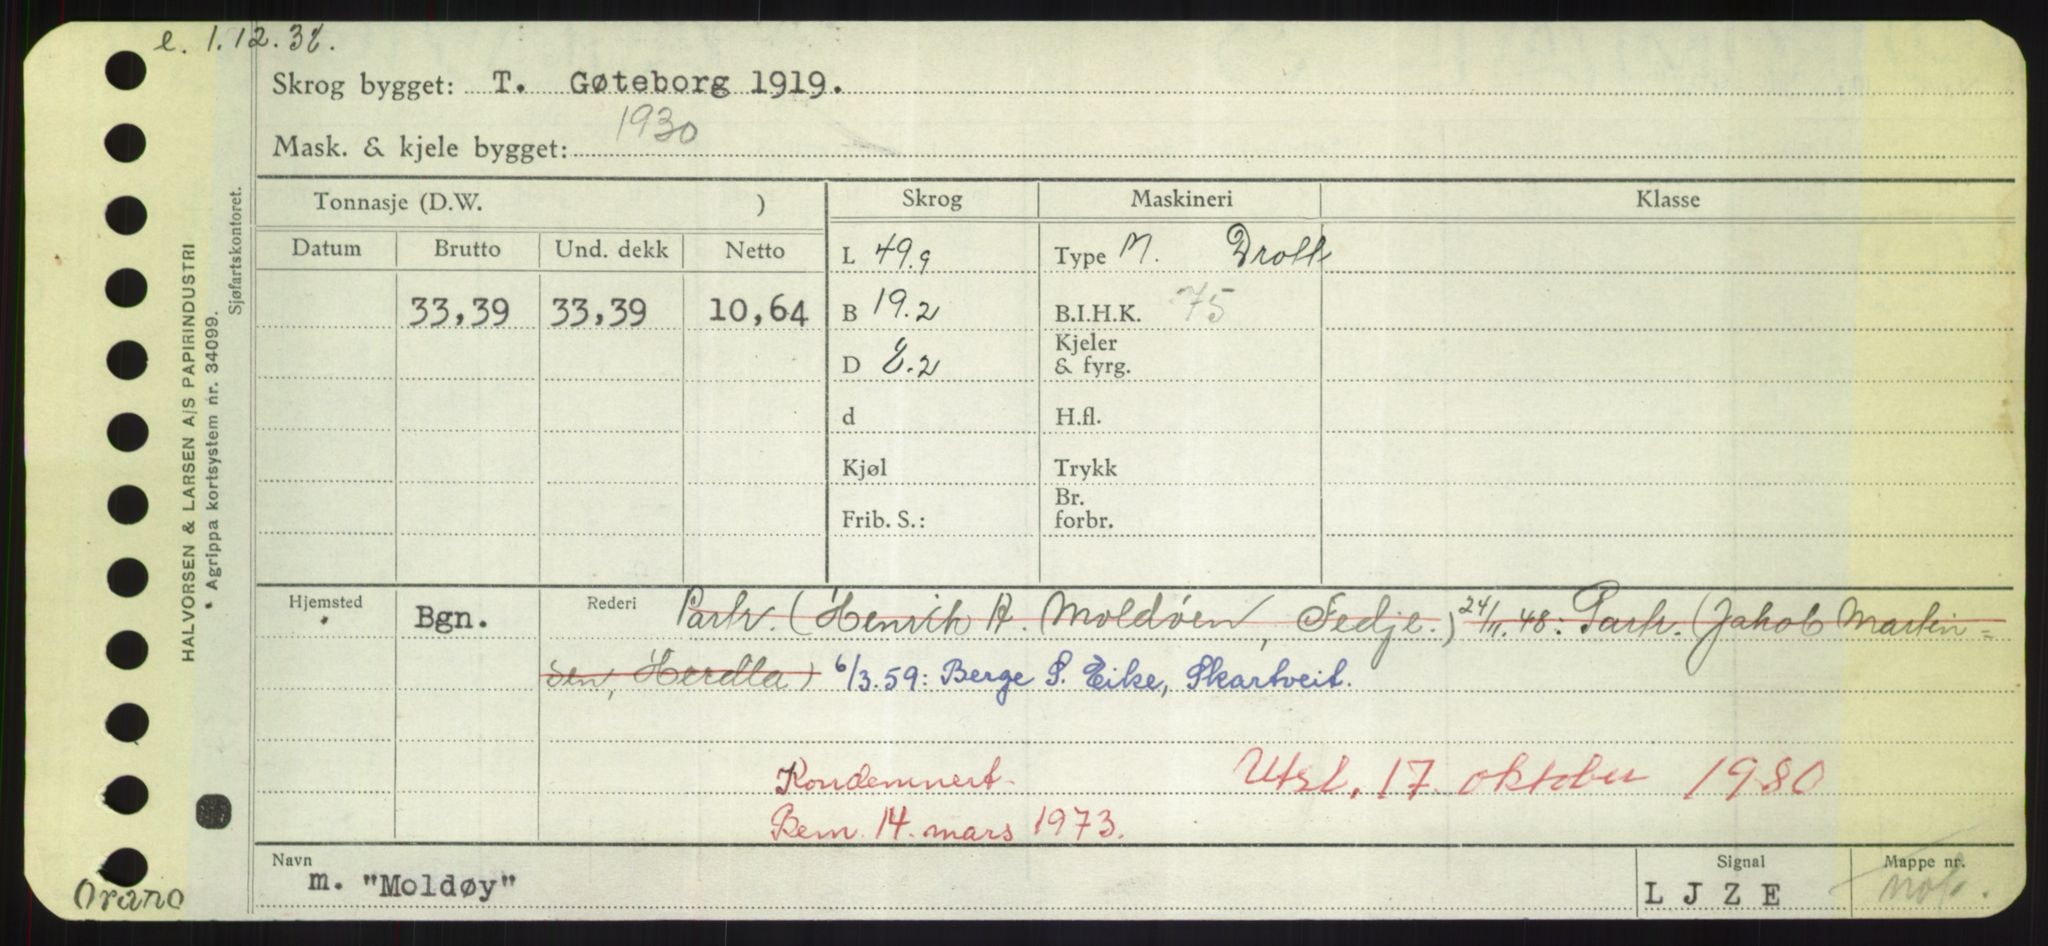 e. 1.12.38.
Skrog bygget: T. Gøteborg 1919.
1930
Mask. & kjele bygget:
Tonnasje (D.W. )
Skrog
Maskineri
Klasse
Datum
Brutto
Und. dekk
Netto
33,39
33,39
10,64
L 49.9
B 19.2
D 8.2
d
Kjøl
Frib. S.:
Type M. Drott
B.I.H.K. 75
Kjeler
& fyrg.
H.fl.
Trykk
Br.
forbr.
Hjemsted
Bgn.
Rederi Partr. (Henrik A. Moldøen, Fedje.) 24/11.48: Partr. (Jakob Martin=
sen, Herdla) 6/3.59: Berge S. Eike, Skartveit.
Kondemnert
Utsl. 17. oktober 1980
Bem. 14. mars 1973.
Navn
m. "Moldøy"
Signal
L J Z E
Mappe nr.
HALVORSEN & LARSEN A/S PAPIRINDUSTRI
* Agrippa kortsystem nr. 34099.
Sjøfartskontoret.
Orano